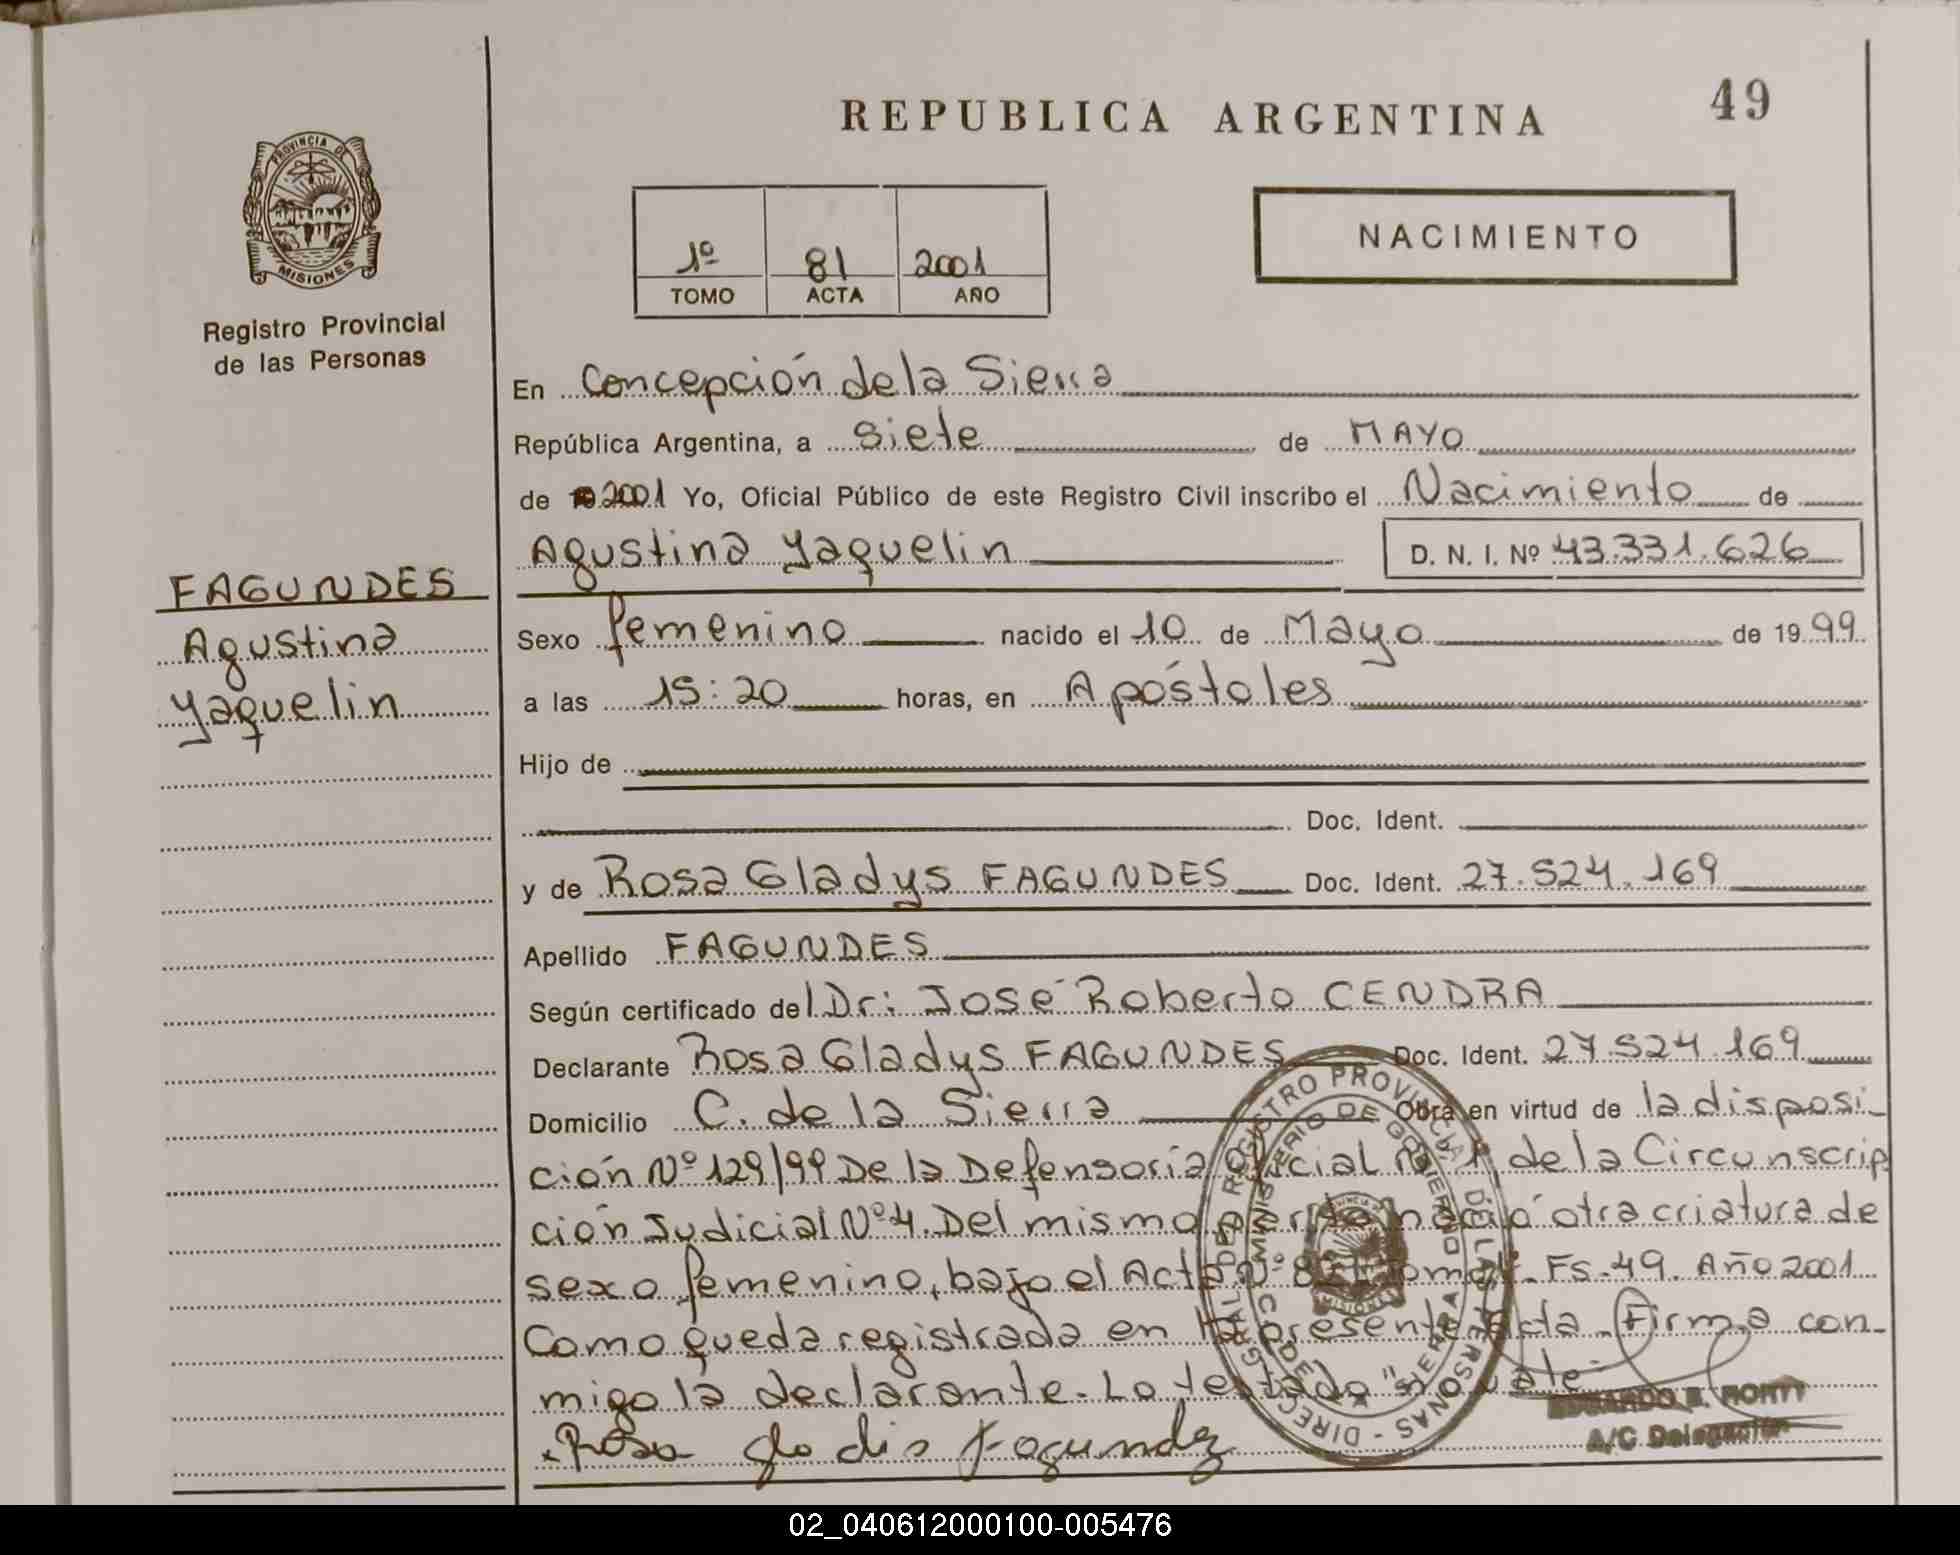 REPUBLICA ARGENTINA
49
PROVINCIA DE
MISIONES
Registro Provincial
de las Personas
1º 81 2001
TOMO ACTA AÑO
NACIMIENTO
En Concepción de la Sierra
República Argentina, a siete de MAYO
de 2001 Yo, Oficial Público de este Registro Civil inscribo el Nacimiento de
Agustina Yaquelin D. N. I. Nº 43.331.626
FAGUNDES
Agustina
Yaquelin
Sexo femenino nacido el 10 de Mayo de 1999
a las 15:20 horas, en Apóstoles
Hijo de
Doc. Ident.
y de Rosa Gladys FAGUNDES Doc. Ident. 27.524.169
Apellido FAGUNDES
Según certificado del Dr: José Roberto CENDRA
Declarante Rosa Gladys FAGUNDES Doc. Ident. 27.524.169
Domicilio C. de la Sierra Obra en virtud de la disposi-
ción Nº 129/99 De la Defensoría Oficial Nº 1 de la Circunscrip
ción Judicial Nº 4. Del mismo parto nació otra criatura de
sexo femenino, bajo el Acta Nº Tomo Fs-49. Año 2001
Como queda registrada en la presente Acta. Firma con-
migo la declarante. Lo testado "19" no vale.
Rosa gladis Fagundez
A/C Delegación
DIRECCION GRAL. DEL REGISTRO PROVINCIAL DE LAS PERSONAS
MINISTERIO DE GOBIERNO
02_040612000100-005476